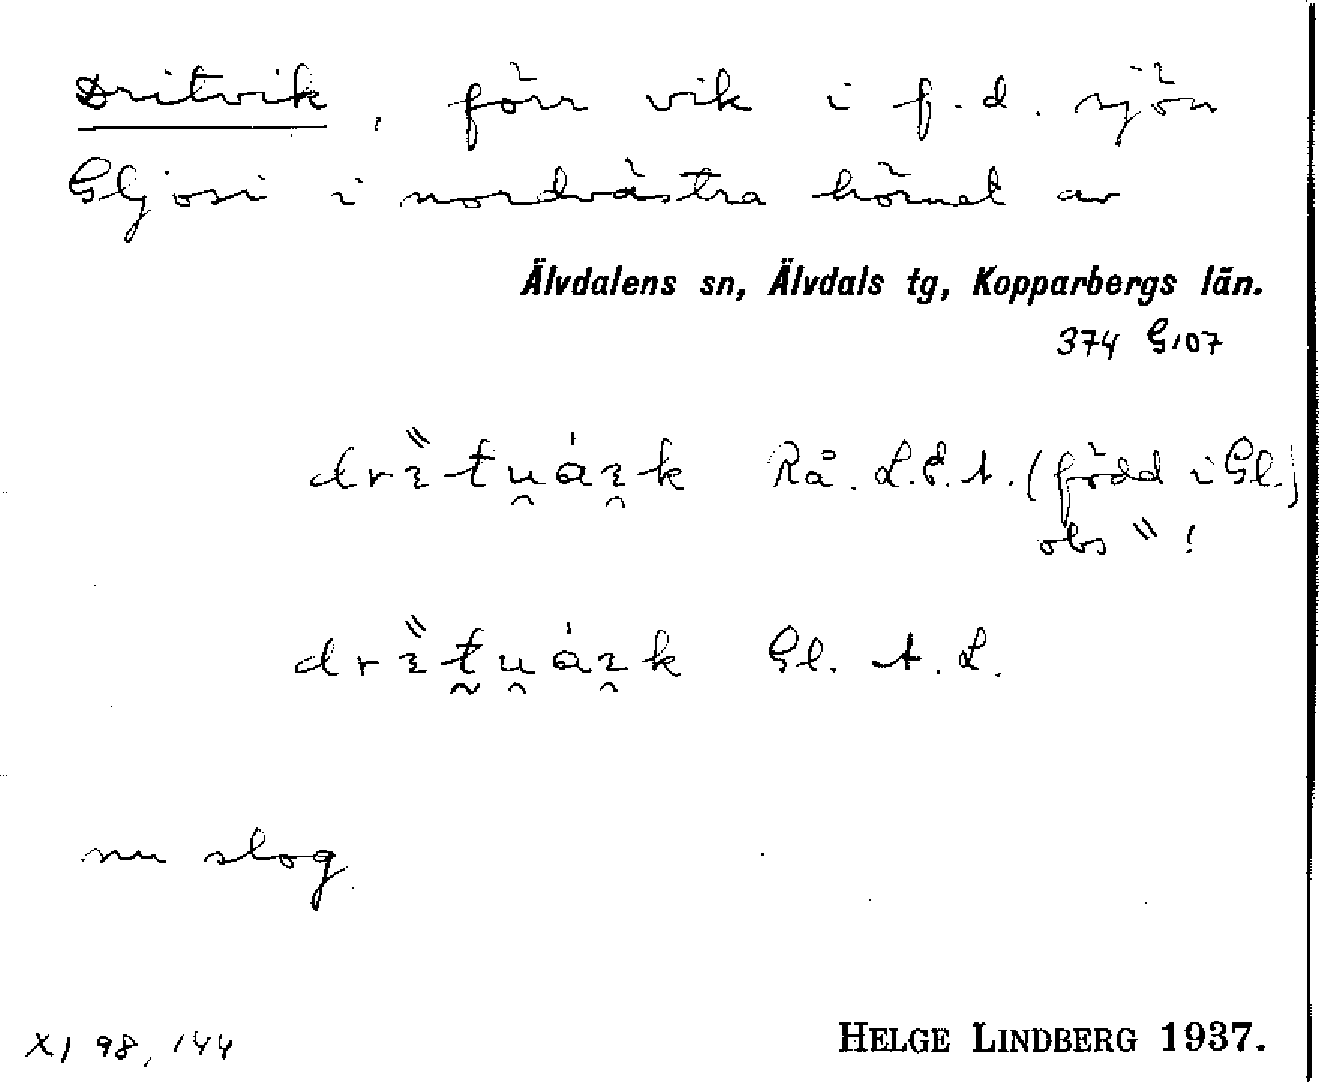 Dritvik, förr vik i f.d. sjön
Gljosi i nordvästra hörnet av
Älvdalens sn, Älvdals tg, Kopparbergs län.
374 G107
Rå. L.E.A. (född i Gl.)
obs " !
Gl. A.L.
nu slog
XI 98, 144
HELGE LINDBERG 1937.